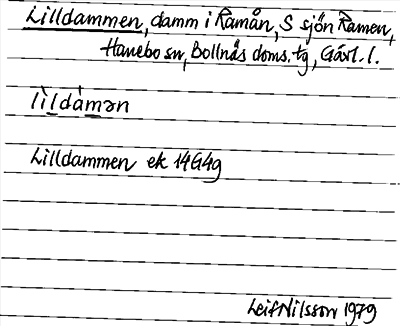 Lilldammen, damm i Ramån, S sjön Ramen,
Hanebo sn, Bollnäs doms. tg, Gävl. l.
lìldàmən
Lilldammen ek 14G4g
Leif Nilsson 1979